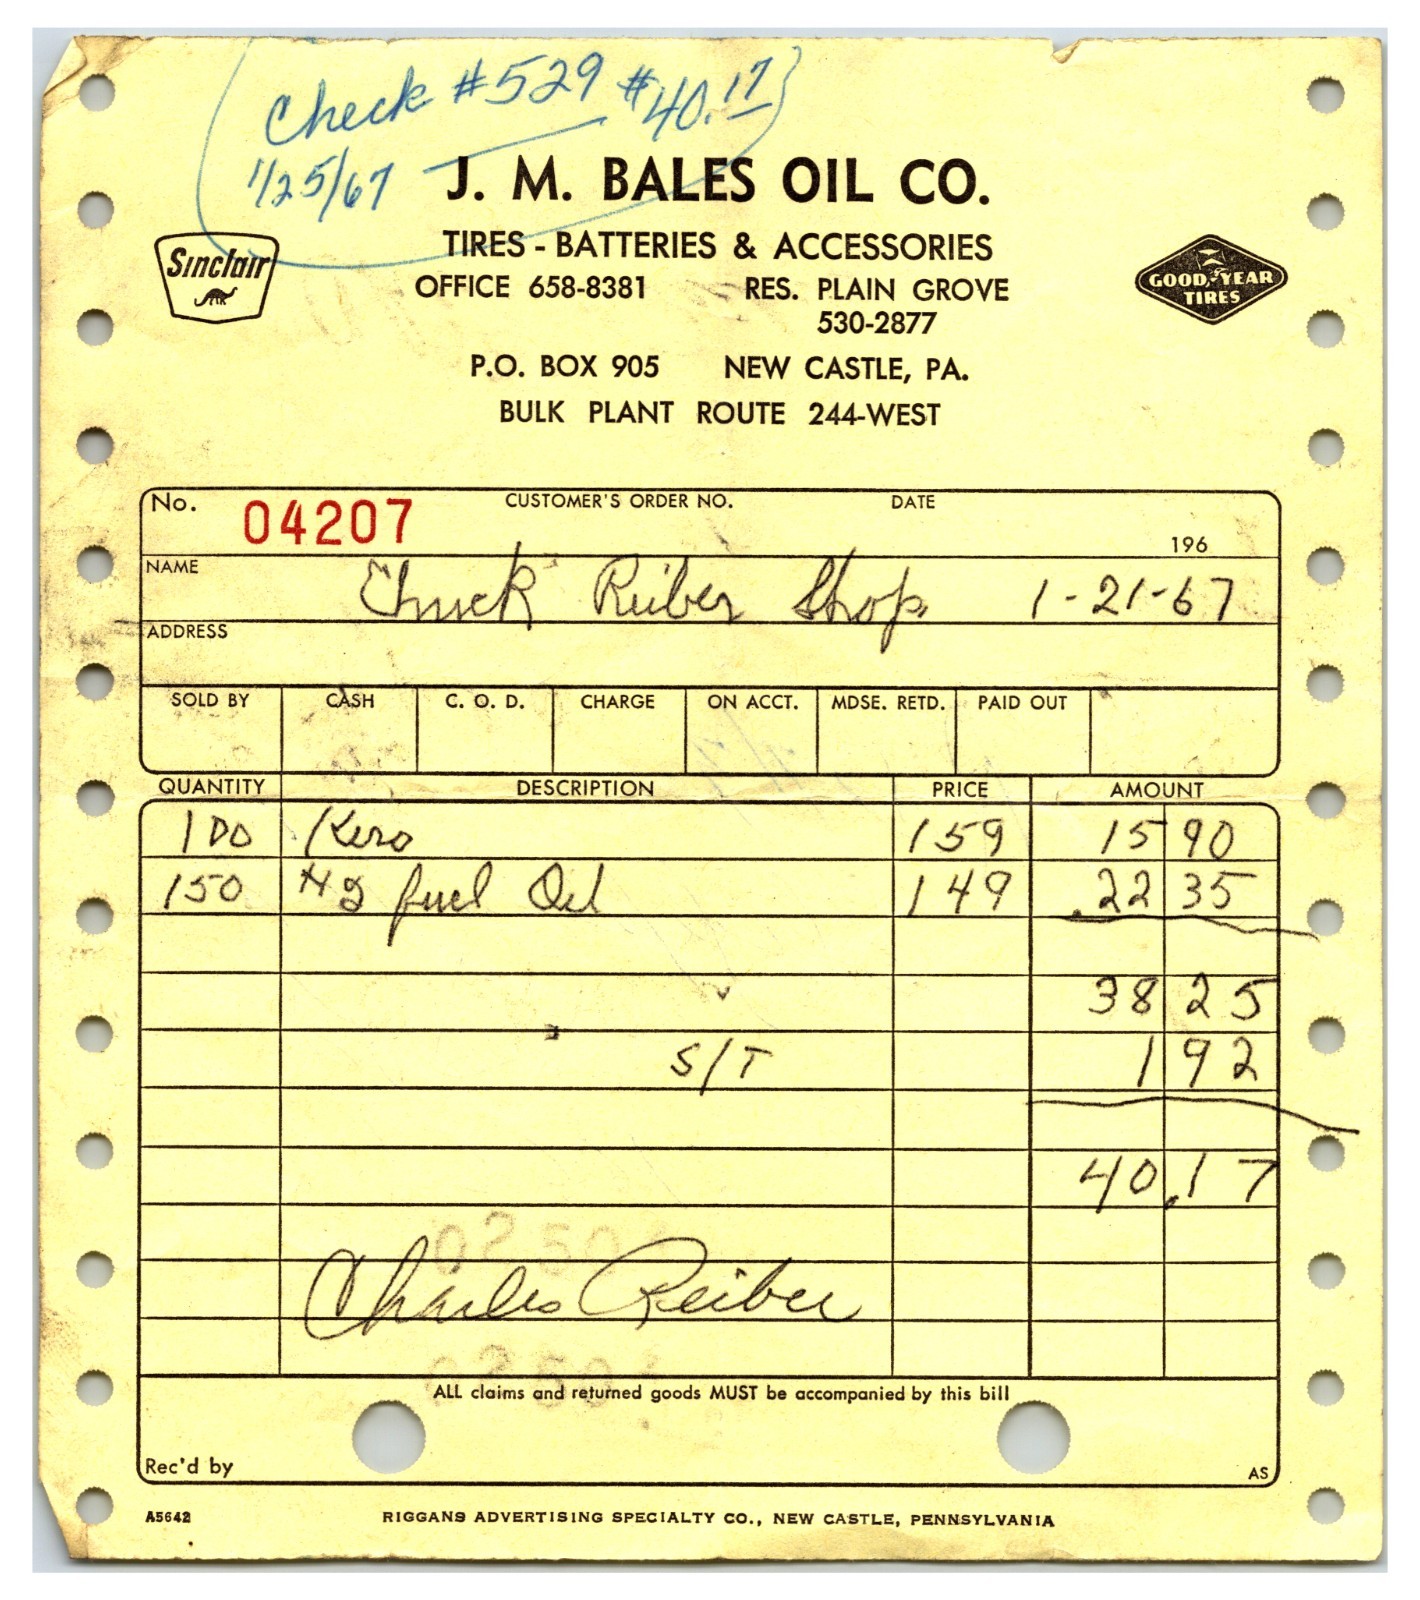 Check #529 $40.17
1/25/67
J. M. BALES OIL CO.
TIRES - BATTERIES & ACCESSORIES
Sinclair
OFFICE 658-8381 RES. PLAIN GROVE
530-2877
GOOD YEAR
TIRES
P.O. BOX 905 NEW CASTLE, PA.
BULK PLANT ROUTE 244-WEST
No. 04207 CUSTOMER'S ORDER NO. DATE
196
NAME Chuck Reiber Shop 1-21-67
ADDRESS
SOLD BY CASH C. O. D. CHARGE ON ACCT. MDSE. RETD. PAID OUT
QUANTITY DESCRIPTION PRICE AMOUNT
100 Kero 159 15 90
150 #2 fuel Oil 149 22 35
38 25
S/T 1 92
40.17
Charles Reiber
ALL claims and returned goods MUST be accompanied by this bill
Rec'd by AS
A5642 RIGGANS ADVERTISING SPECIALTY CO., NEW CASTLE, PENNSYLVANIA